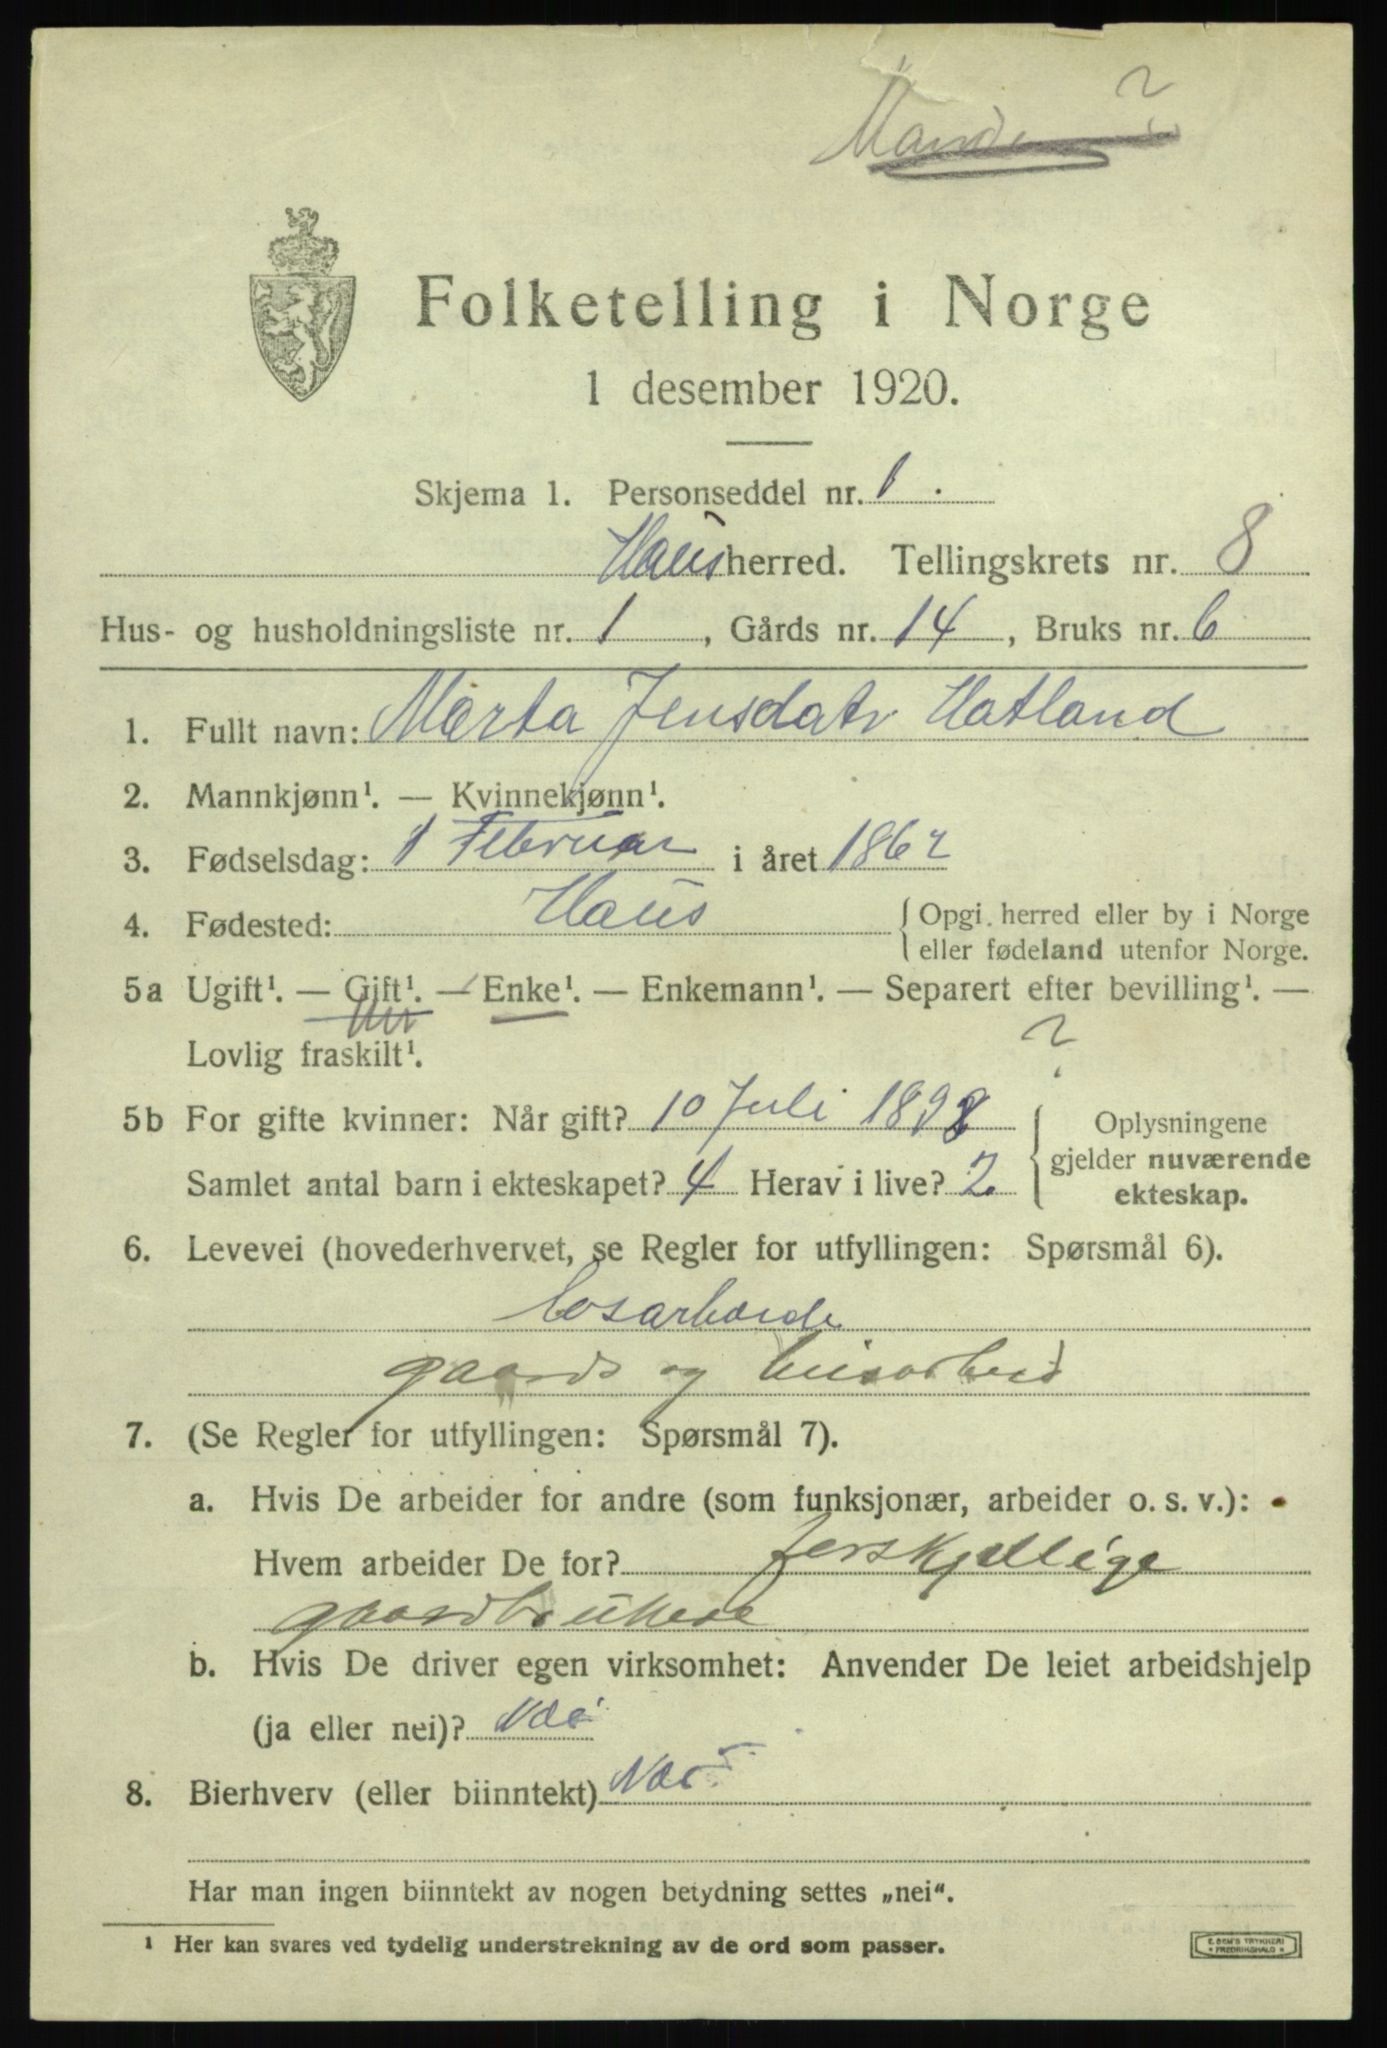 Manden ?
Folketelling i Norge
1 desember 1920.
Skjema 1. Personseddel nr. 1.
Haus herred. Tellingskrets nr. 8
Hus- og husholdningsliste nr. 1, Gårds nr. 14, Bruks nr. 6
1. Fullt navn: Marta Jensdatr Hatland
2. Mannkjønn¹. — Kvinnekjønn¹.
3. Fødselsdag: 1 Februar i året 1862
4. Fødested: Haus { Opgi herred eller by i Norge
eller fødeland utenfor Norge.
5a Ugift¹. — Gift¹. — Enke¹. — Enkemann¹. — Separert efter bevilling¹. —
Lovlig fraskilt¹. ?
5b For gifte kvinner: Når gift? 10 Juli 1898 { Oplysningene
gjelder nuværende
Samlet antal barn i ekteskapet? 4 Herav i live? 2. ekteskap.
6. Levevei (hovederhvervet, se Regler for utfyllingen: Spørsmål 6).
losarbeide
gaards og husarbeid
7. (Se Regler for utfyllingen: Spørsmål 7).
a. Hvis De arbeider for andre (som funksjonær, arbeider o. s. v.):
Hvem arbeider De for? forskjellige
gaardbrukere
b. Hvis De driver egen virksomhet: Anvender De leiet arbeidshjelp
(ja eller nei)? Næi
8. Bierhverv (eller biinntekt) Næi
Har man ingen biinntekt av nogen betydning settes „nei“.
¹ Her kan svares ved tydelig understrekning av de ord som passer.
E. SEM'S TRYKKERI
FREDRIKSHALD